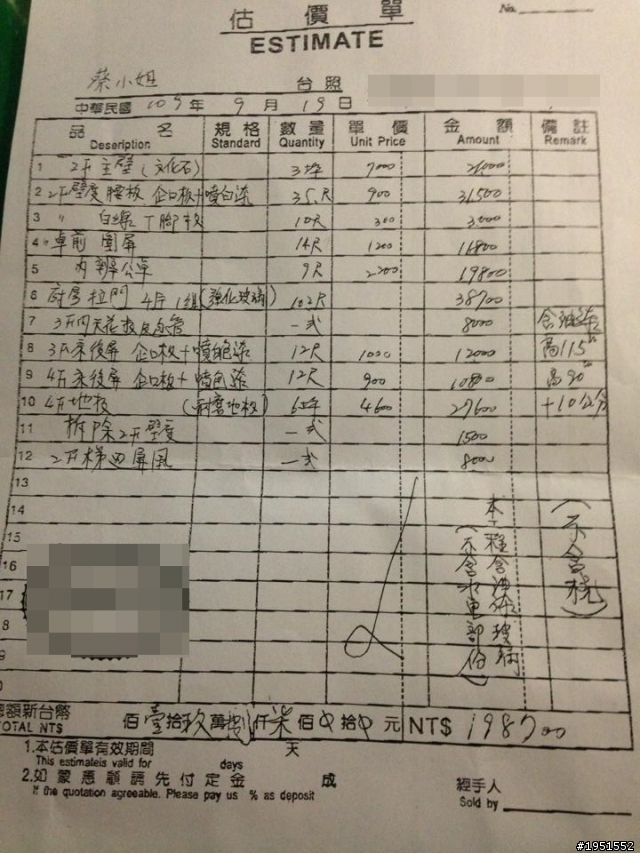 估價單
No.
ESTIMATE
蔡小姐 台照
中華民國 109年 9月 19日
品名 規格 數量 單價 金額 備註
Description Standard Quantity Unit Price Amount Remark
1 2F主壁(文化石) 3坪 7000 21000
2 2F壁度腰板 企口板+噴白漆 35尺 900 31500
3 〃 白線T腳板 10尺 300 3000
4 〃 桌前圍屏 14尺 1200 16800
5 內辦公桌 9尺 2200 19800
6 廚房拉門 4片1組(強化玻璃) 102尺 38700
7 3F天花板 一式 8000
8 3F床後屏 企口板+噴白漆 12尺 1000 12000 高115
9 4F床後屏 企口板+噴白漆 12尺 900 10800 高90
10 4F地板 (耐磨地板) 6坪 4600 27600 +10公分
11 拆除2F壁度 一式 1500
12 2F梯四屏風 一式 8000
13
14
15
17
8
9
0
本工程含油漆 玻璃
(不含水電部份)
(不含燒)
總額新台幣 佰壹拾玖萬捌仟柒佰0拾0元 NT$ 198700
TOTAL NT$
1.本估價單有效期間 天
This estimateis valid for days
2.如蒙惠顧請先付定金 成
If the quotation agreeable. Please pay us % as deposit
經手人
Sold by
#1951552